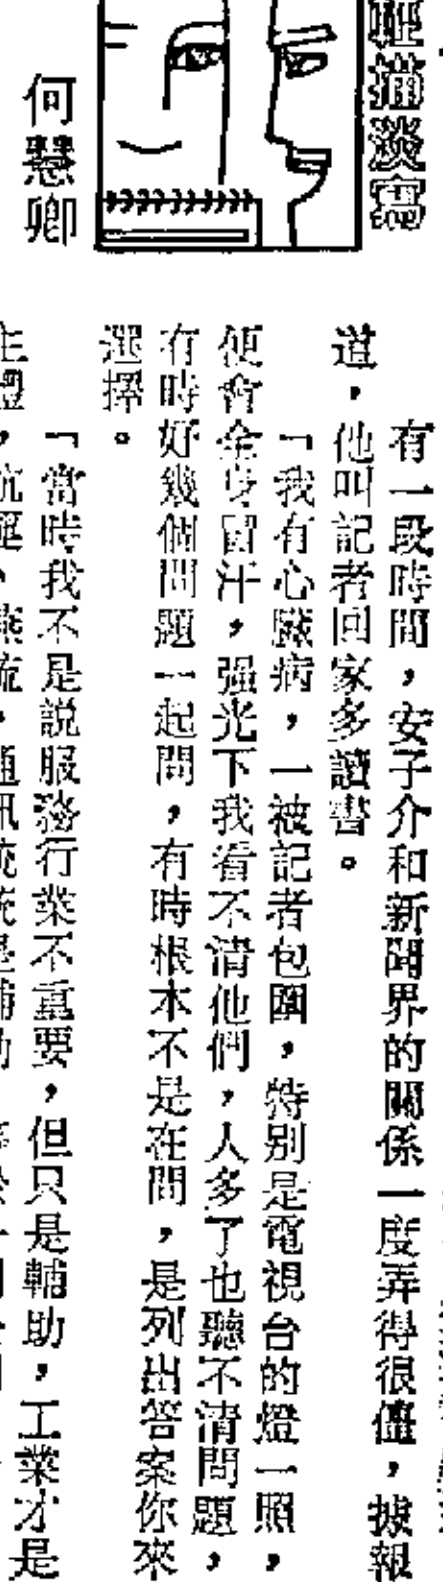 輕描淡寫
何慧卿
有一段時間，安子介和新聞界的關係一度弄得很僵，據報
道，他叫記者回家多讀書。
「我有心臟病，一被記者包圍，特別是電視台的燈一照，
便會全身冒汗，强光下我看不清他們，人多了也聽不清問題，
有時好幾個問題一起問，有時根本不是在問，是列出答案你來
選擇。
「當時我不是説服務行業不重要，但只是輔助，工業才是
主體，航運、